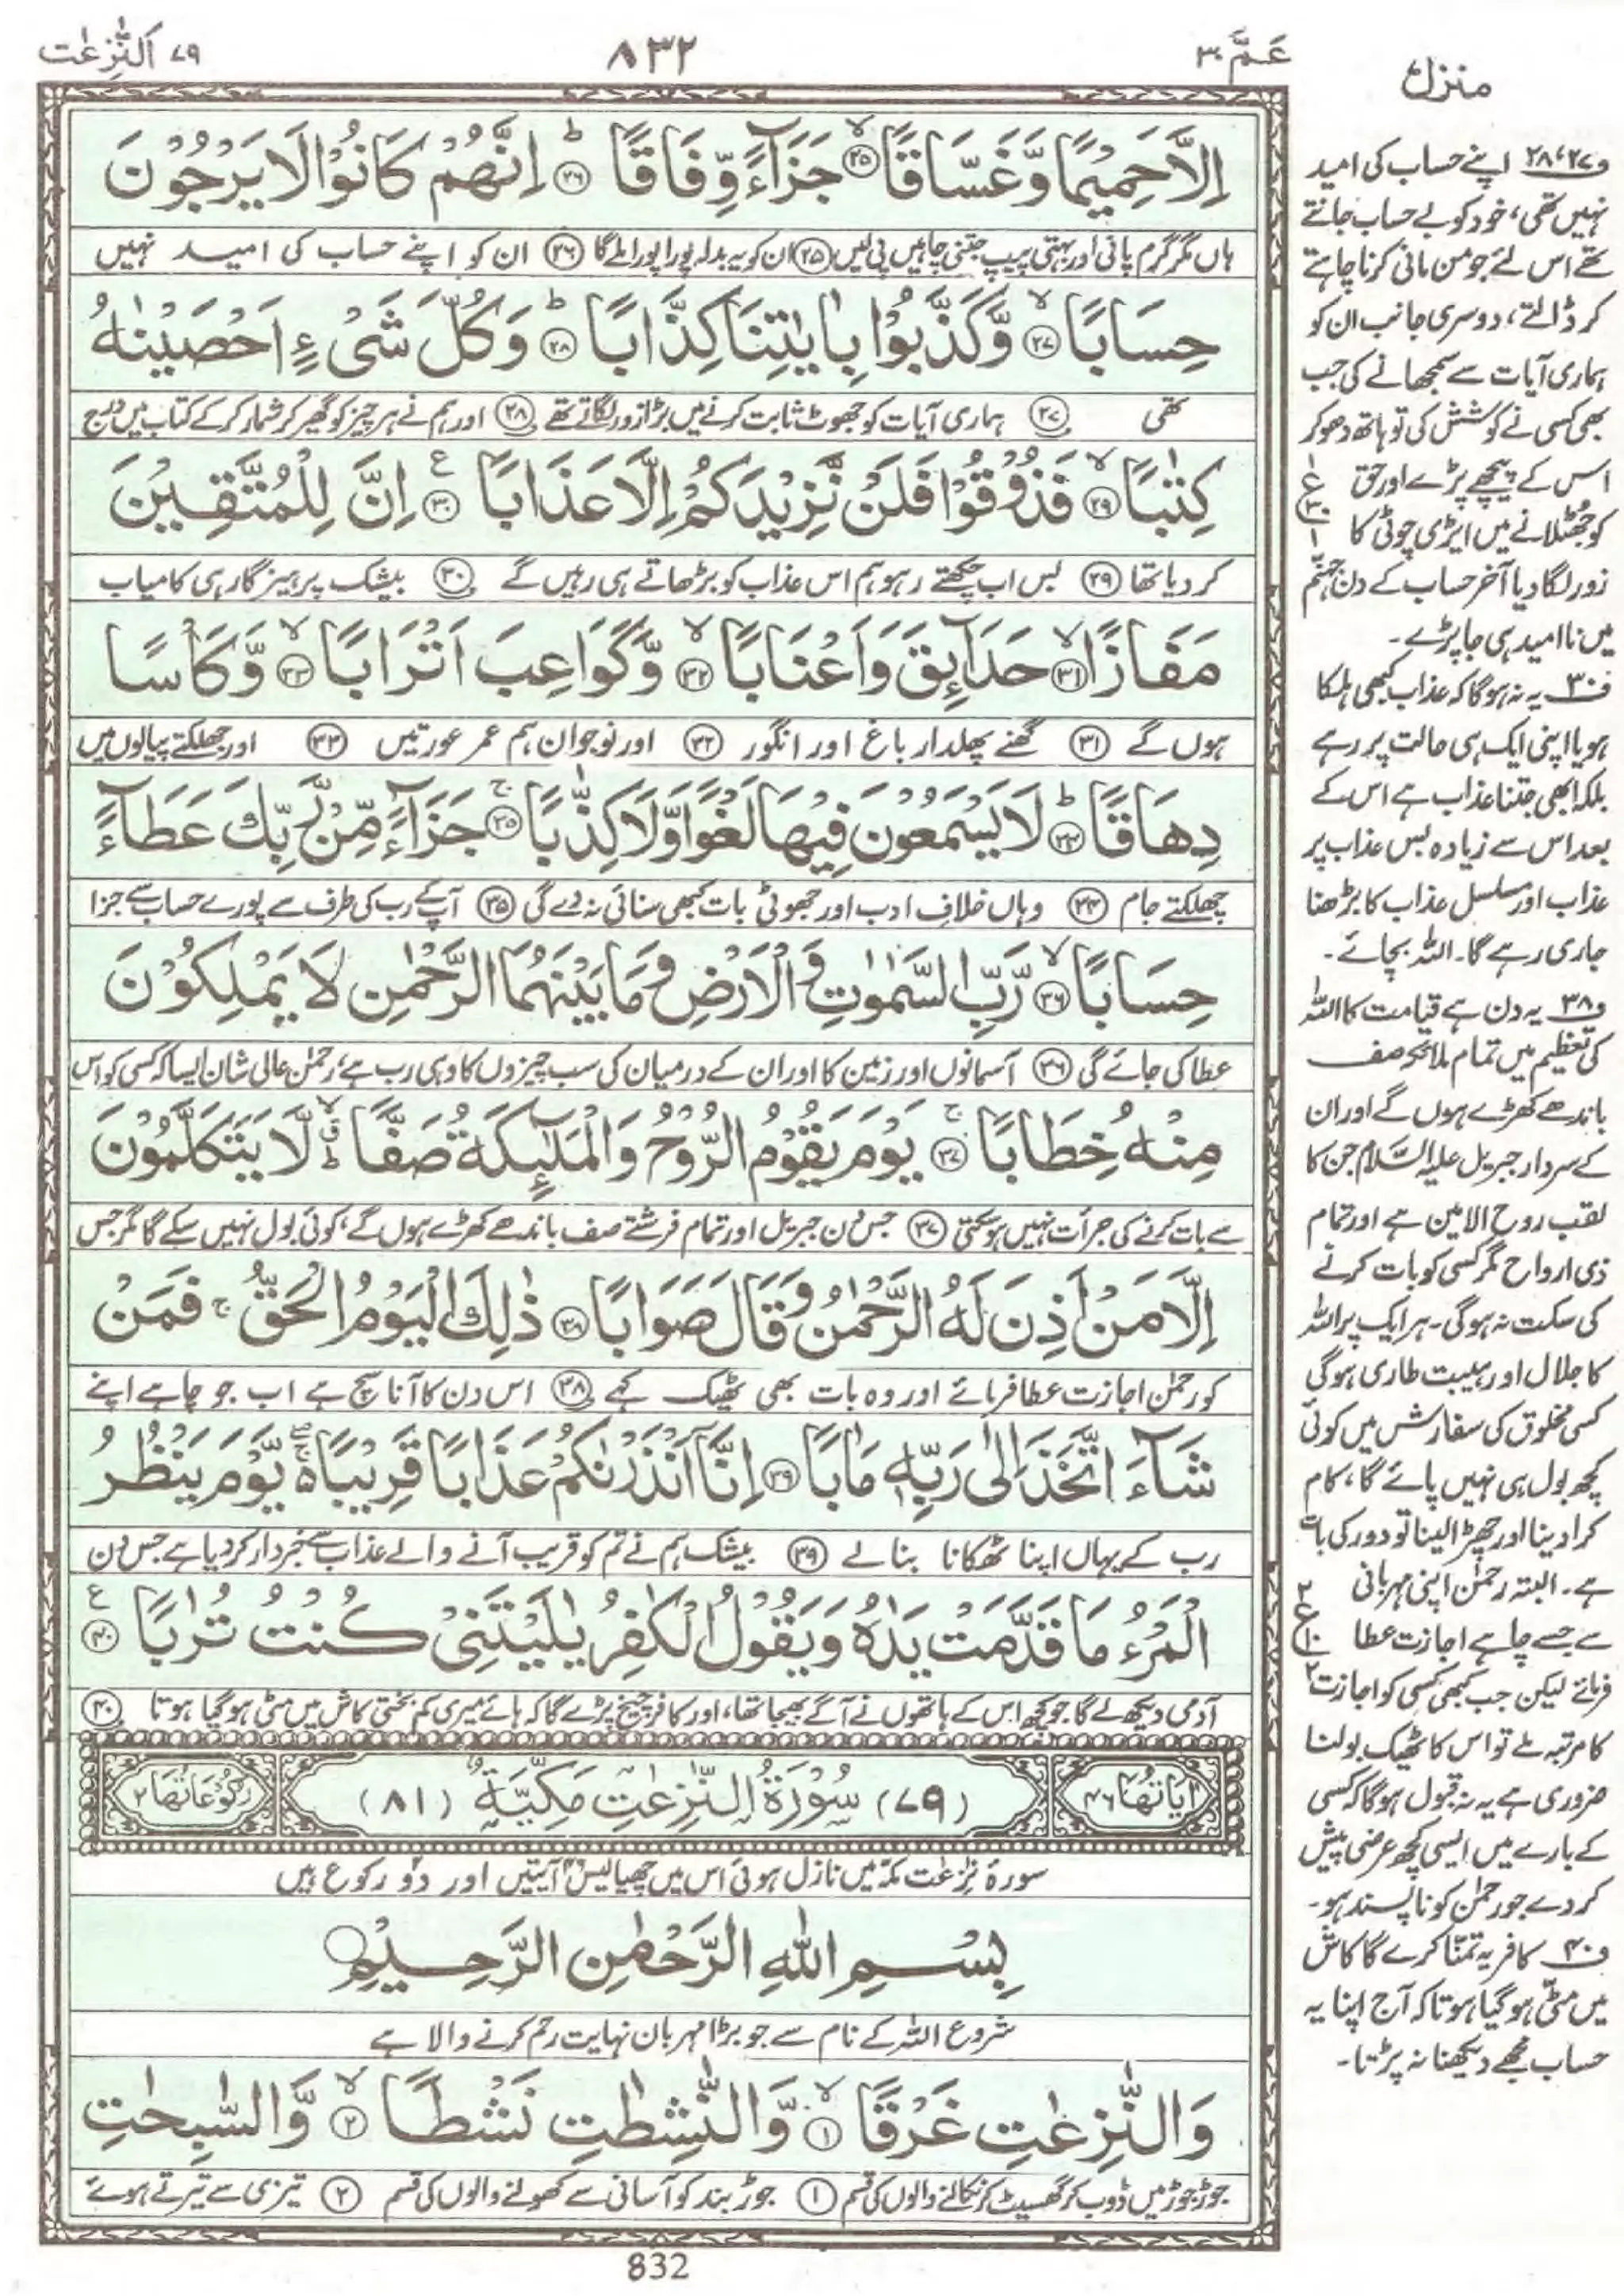 عَمَّ ٣٠
٨٣٢
٧٩ اَلنّٰزِعٰت
اِلَّا حَمِيْمًا وَّغَسَّاقًا ۙ﴿۲۵﴾ جَزَآءً وِّفَاقًا ؕ﴿۲۶﴾ اِنَّهُمْ كَانُوْا لَا يَرْجُوْنَ
ہاں مگر گرم پانی اور بہتی پیپ جتنی چاہیں پی لیں ﴿۲۵﴾ ان کو یہ بدلہ پورا پورا ملے گا ﴿۲۶﴾ ان کو اپنے حساب کی امید نہیں
حِسَابًا ۙ﴿۲۷﴾ وَّكَذَّبُوْا بِاٰيٰتِنَا كِذَّابًا ؕ﴿۲۸﴾ وَكُلَّ شَیْءٍ اَحْصَيْنٰهُ
تھی ﴿۲۷﴾ ہماری آیات کو جھوٹ ثابت کرنے میں بڑا زور لگاتے تھے ﴿۲۸﴾ اور ہم نے ہر چیز کو گھیر کر شمار کر کے کتاب میں درج
كِتٰبًا ۙ﴿۲۹﴾ فَذُوْقُوْا فَلَنْ نَّزِيْدَكُمْ اِلَّا عَذَابًا ﴿۳۰﴾ ع اِنَّ لِلْمُتَّقِيْنَ
کر دیا تھا ﴿۲۹﴾ بس اب چکھتے رہو ہم اس عذاب کو بڑھاتے ہی رہیں گے ﴿۳۰﴾ بیشک پرہیزگار ہی کامیاب
مَفَازًا ۙ﴿۳۱﴾ حَدَآئِقَ وَاَعْنَابًا ۙ﴿۳۲﴾ وَّكَوَاعِبَ اَتْرَابًا ۙ﴿۳۳﴾ وَّكَاْسًا
ہوں گے ﴿۳۱﴾ گھنے پھلدار باغ اور انگور ﴿۳۲﴾ اور نوجوان ہم عمر عورتیں ﴿۳۳﴾ اور جھلکتے پیالوں میں
دِهَاقًا ؕ﴿۳۴﴾ لَا يَسْمَعُوْنَ فِيْهَا لَغْوًا وَّلَا كِذّٰبًا ۚ﴿۳۵﴾ جَزَآءً مِّنْ رَّبِّكَ عَطَآءً
چھلکتے جام ﴿۳۴﴾ وہاں خلافِ ادب اور جھوٹی بات کبھی سنائی نہ دے گی ﴿۳۵﴾ آپ کے رب کی طرف سے پورے حساب سے جزا
حِسَابًا ۙ﴿۳۶﴾ رَّبِّ السَّمٰوٰتِ وَالْاَرْضِ وَمَا بَيْنَهُمَا الرَّحْمٰنِ لَا يَمْلِكُوْنَ
عطا کی جائے گی ﴿۳۶﴾ آسمانوں اور زمین کا اور ان کے درمیان کی سب چیزوں کا وہی رب ہے، رحمٰن عالی شان ایسا کہ کسی کو اس
مِنْهُ خِطَابًا ۚ﴿۳۷﴾ يَوْمَ يَقُوْمُ الرُّوْحُ وَالْمَلٰٓئِكَةُ صَفًّا لَّا يَتَكَلَّمُوْنَ
سے بات کرنے کی جرأت نہیں ہو سکتی ﴿۳۷﴾ جس دن جبریل اور تمام فرشتے صف باندھے کھڑے ہوں گے، کوئی بول نہیں سکے گا مگر جس
اِلَّا مَنْ اَذِنَ لَهُ الرَّحْمٰنُ وَقَالَ صَوَابًا ﴿۳۸﴾ ذٰلِكَ الْيَوْمُ الْحَقُّ ۚ فَمَنْ
کو رحمٰن اجازت عطا فرمائے اور وہ بات بھی ٹھیک کہے ﴿۳۸﴾ اس دن کا آنا سچ ہے اب جو چاہے اپنے
شَآءَ اتَّخَذَ اِلٰى رَبِّهٖ مَاٰبًا ﴿۳۹﴾ اِنَّاۤ اَنْذَرْنٰكُمْ عَذَابًا قَرِيْبًا ۚۖ يَّوْمَ يَنْظُرُ
رب کے یہاں اپنا ٹھکانا بنا لے ﴿۳۹﴾ بیشک ہم نے تم کو قریب آنے والے عذاب سے خبردار کر دیا ہے جس دن
الْمَرْءُ مَا قَدَّمَتْ يَدٰهُ وَيَقُوْلُ الْكٰفِرُ يٰلَيْتَنِیْ كُنْتُ تُرٰبًا ﴿۴۰﴾ ع
آدمی دیکھ لے گا جو کچھ اس کے ہاتھوں نے آگے بھیجا تھا، اور کافر چیخ پڑے گا کہ ہائے میری کم بختی کاش میں مٹی ہو گیا ہوتا ﴿۴۰﴾
اٰیَاتُهَا ۴۶ (۷۹) سُوْرَةُ النّٰزِعٰتِ مَكِّيَّةٌ (۸۱) رُكُوْعَاتُهَا ۲
سورۂ نٰزعٰت مکہ میں نازل ہوئی اس میں چھیالیس آیتیں اور دو رکوع ہیں
بِسْمِ اللّٰهِ الرَّحْمٰنِ الرَّحِيْمِ
شروع اللہ کے نام سے جو بڑا مہربان نہایت رحم کرنے والا ہے
وَالنّٰزِعٰتِ غَرْقًا ۙ﴿۱﴾ وَّالنّٰشِطٰتِ نَشْطًا ۙ﴿۲﴾ وَّالسّٰبِحٰتِ
جوڑ جوڑ میں ڈوب کر گھسیٹ کر نکالنے والوں کی قسم ﴿۱﴾ جوڑ بند کو آسانی سے کھولنے والوں کی قسم ﴿۲﴾ تیزی سے تیرتے ہوئے
832
منزل
ف۲۷، ۲۸ اپنے حساب کی امید
نہیں تھی، خود کو بے حساب جانتے
تھے اس لئے جو من مانی کرنا چاہتے
کر ڈالتے، دوسری جانب ان کو
ہماری آیات سے سمجھانے کی جب
بھی کسی نے کوشش کی تو ہاتھ دھو کر
اس کے پیچھے پڑے اور حق
کو جھٹلانے میں ایڑی چوٹی کا
زور لگا دیا آخر حساب کے دن جہنم
میں نا امید ہی جا پڑے۔
ف۳۰ یہ نہ ہوگا کہ عذاب کبھی ہلکا
ہو یا اپنی ایک ہی حالت پر رہے
بلکہ ابھی جتنا عذاب ہے اس کے
بعد اس سے زیادہ بس عذاب پر
عذاب اور مسلسل عذاب کا بڑھنا
جاری رہے گا۔ اللہ بچائے۔
ف۳۸ یہ دن ہے قیامت کا اللہ
کی تعظیم میں تمام ملائکہ صف
باندھے کھڑے ہوں گے اور ان
کے سردار جبریل علیہ السلام جن کا
لقب روح الامین ہے اور تمام
ذی ارواح مگر کسی کو بات کرنے
کی سکت نہ ہوگی۔ ہر ایک پر اللہ
کا جلال اور ہیبت طاری ہوگی
کسی مخلوق کی سفارش میں کوئی
کچھ بول ہی نہیں پائے گا، کام
کرا دینا اور چھڑا لینا تو دور کی بات
ہے۔ البتہ رحمٰن اپنی مہربانی
سے جسے چاہے اجازت عطا
فرمائے لیکن جب کبھی کسی کو اجازت
کا مرتبہ ملے تو اس کا ٹھیک بولنا
ضروری ہے یہ نہ قبول ہوگا کہ کسی
کے بارے میں ایسی کچھ عرضی پیش
کر دے جو رحمٰن کو ناپسند ہو۔
ف۴۰ کافر یہ تمنّا کرے گا کاش
میں مٹی ہو گیا ہوتا کہ آج اپنا یہ
حساب مجھے دیکھنا نہ پڑتا۔